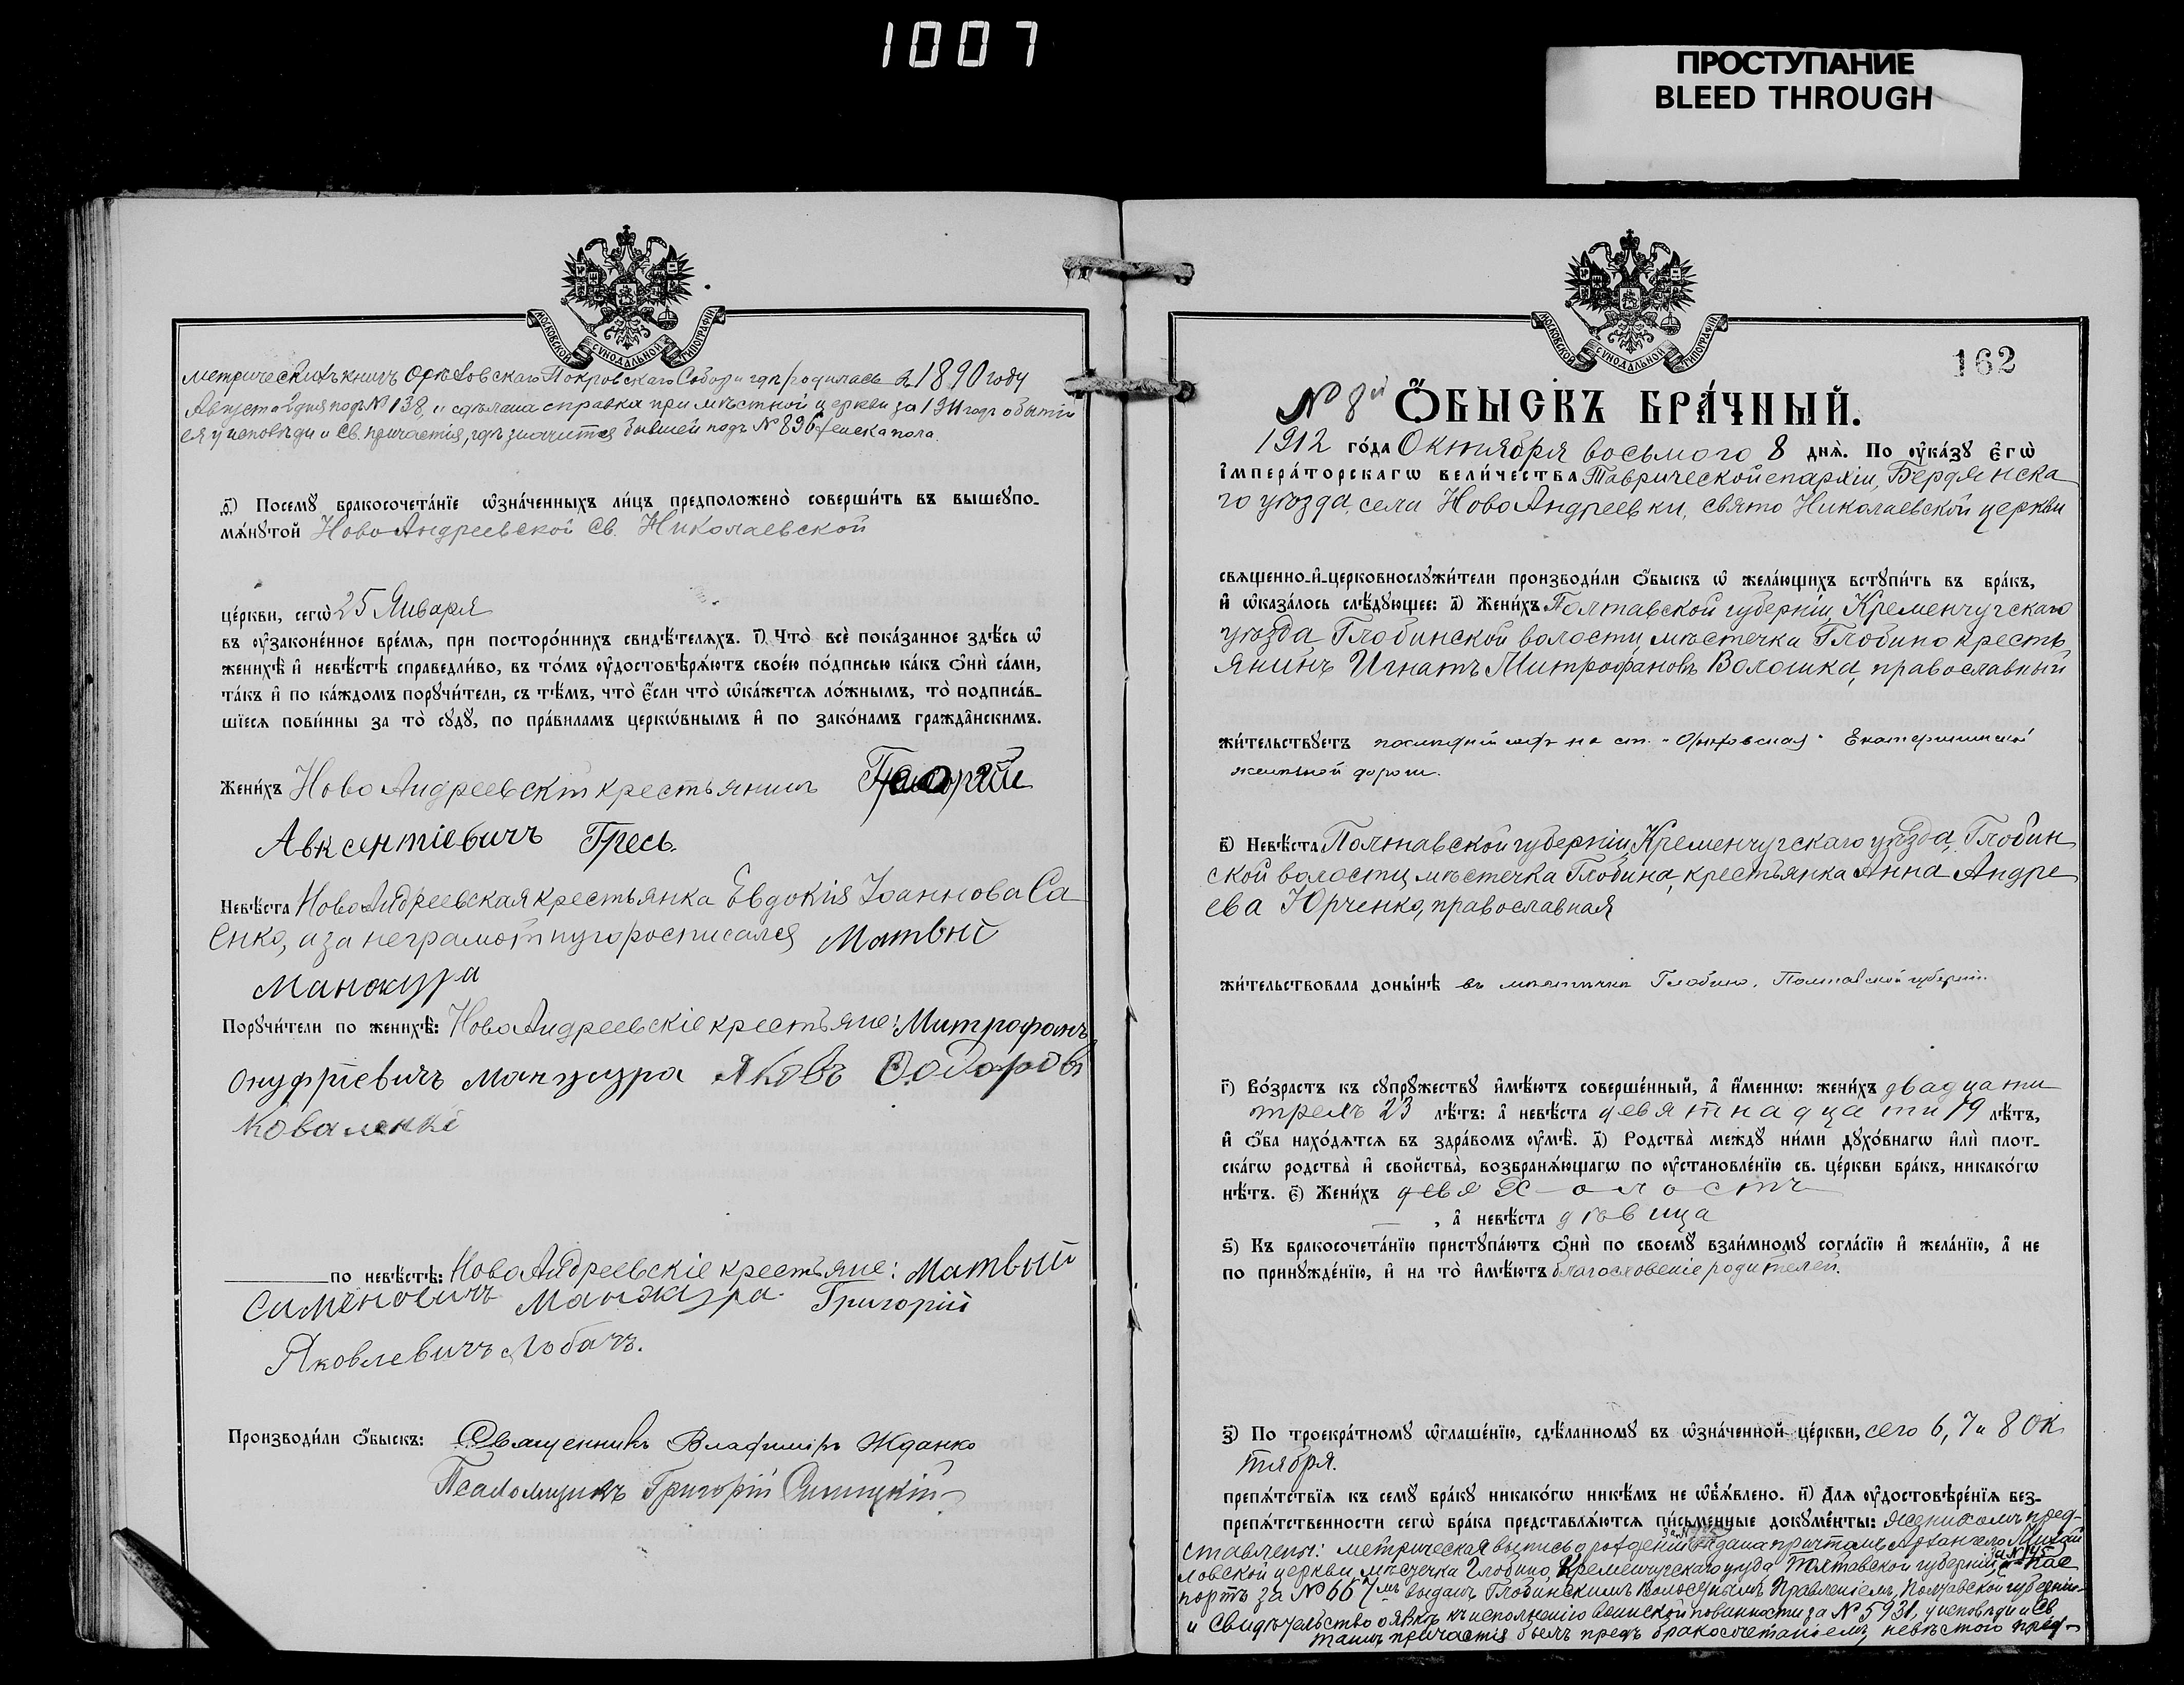 1007
ПРОСТУПАНИЕ
BLEED THROUGH
МОСКОВСКОЙ СУНОДАЛЬНОЙ ТИПОГРАФІИ
метрическихъ книгъ Орѣховскаго Покровскаго Собора гдѣ родилась въ 1890 году
Августа 2 дня подъ № 138, и сдѣлана справка при мѣстной церкви за 1911 годъ о бытіи
ея у исповѣди и Св. причастія, гдѣ значится бывшей подъ № 896 женска пола.
д҃) Посемꙋ бракосочета́нїе ѡ҆зна́ченныхъ ли́цъ предположено̀ соверши́ть въ вышеꙋпо-
мѧ́нꙋтой НовоАндреевской Св. Николаевской
це́ркви, сегѡ̀ 25 Января
въ ᲂу҆законе́нное вре́мѧ, при посторо́ннихъ свидѣ́телѧхъ. і҃) Что̀ всѐ пока́занное здѣ́сь ѡ҆
женихѣ̀ и҆ невѣ́стѣ справедли́во, въ то́мъ ᲂу҆достовѣрѧ́ютъ свое́ю по́дписью ка́къ ѻ҆нѝ са́ми,
та́къ и҆ по ка́ждомъ порꙋчи́тели, съ тѣ́мъ, что̀ є҆́сли что̀ ѡ҆ка́жетсѧ ло́жнымъ, то̀ подписа́в-
шїесѧ пови́нны за то̀ сꙋдꙋ̀, по пра́виламъ церко́внымъ и҆ по зако́намъ гражда́нскимъ.
Жени́хъ НовоАндреевскій крестьянинъ
Авксентіевичъ Гресь.
Невѣ́ста НовоАндреевская крестьянка Евдокія Іоаннова Са
енко, а за неграмотную росписался Матвѣй
Манжура
Порꙋчи́тели по женихѣ̀: НовоАндреевскіе крестьяне: Митрофанъ
Онуфріевичъ Манжура Яковъ Ѳодоровъ
Коваленко
по невѣ́стѣ: НовоАндреевскіе крестьяне: Матвѣй
Сименовичъ Манжура. Григорій
Яковлевичъ Лобачъ.
Производи́ли ѻ҆́быскъ: Священникъ Владиміръ Жданко
Псаломщикъ Григорій
МОСКОВСКОЙ СУНОДАЛЬНОЙ ТИПОГРАФІИ
162
№ 8й Ѻ҆́БЫСКЪ БРА́ЧНЫЙ.
1912 го́да Октября восьмого 8 днѧ̀. По ᲂу҆ка́зꙋ є҆гѡ̀
і҆мпера́торскагѡ вели́чества Таврической епархіи, Бердянска
го уѣзда, села НовоАндреевки, свято Николаевской церкви
свѧщенно-и҆-церковнослꙋжи́тели производи́ли ѻ҆́быскъ ѡ҆ жела́ющихъ встꙋпи́ть въ бра́къ,
и҆ ѡ҆каза́лось слѣ́дꙋющее: а҃) Жени́хъ Полтавской губерніи, Кременчугскаго
уѣзда Глобинской волости, мѣстечка Глобино кресть
янинъ Игнатъ Митрофановъ Волошка, православный
жи́тельствꙋетъ послѣдній на ст. "Орѣховская" Екатерининской
желѣзной дороги.
в҃) Невѣ́ста Полтавской губерніи, Кременчугскаго уѣзда, Глобин
ской волости, мѣстечка Глобина, крестьянка Анна Андре
ева Юрченко, православная
жи́тельствовала доны́нѣ въ мѣстечкѣ Глобино, Полтавской губерніи.
г҃) Во́зрастъ къ сꙋпрꙋжествꙋ и҆мѣ́ютъ соверше́нный, а҆ и҆́менно: жени́хъ двадцати
трехъ 23 лѣ́тъ: а҆ невѣ́ста девятнадцати 19 лѣ́тъ,
и҆ ѻ҆́ба нахо́дѧтсѧ въ здра́вомъ ᲂу҆мѣ̀. д҃) Родства̀ междꙋ̀ ни́ми дꙋхо́внагѡ и҆лѝ плот-
ска́гѡ родства̀ и҆ сво́йства̀, возбранѧ́ющагѡ по ᲂу҆становле́нїю св. це́ркви бра́къ, никако́гѡ
нѣ́тъ. є҃) Жени́хъ холостъ
, а҆ невѣ́ста дѣвица
ѕ҃) Къ бракосочета́нїю пристꙋпа́ютъ ѻ҆нѝ по своемꙋ̀ взаи́мномꙋ согла́сїю и҆ жела́нїю, а҆ не
по принꙋжде́нїю, и҆ на то̀ и҆мѣ́ютъ благословеніе родителей.
з҃) По троекра́тномꙋ ѡ҆глаше́нїю, сдѣ́ланномꙋ въ ѡ҆зна́ченной це́ркви, сего 6, 7 и 8 Ок
тября.
препѧ́тствїѧ къ семꙋ̀ бра́кꙋ никако́гѡ никѣ́мъ не ѡ҆б̾ѧ́влено. и҃) Длѧ ᲂу҆достовѣре́нїѧ без-
препѧ́тственности сегѡ̀ бра́ка представлѧ́ютсѧ пи́сьменные докꙋме́нты: женихомъ пред-
ставлены: метрическая выпись о рожденіи выдана причтомъ Архангело Михай
ловской церкви, мѣстечка Глобино, Кременчугскаго уѣзда Полтавской губерніи, за №145 пас
портъ за № 667мъ выданъ Глобинскимъ Волостнымъ Правленіемъ, Полтавской губерніи
и Свидѣтельство о явкѣ къ исполненію воинской повинности за № 5931, у исповѣди и Св.
таинъ причастія былъ предъ бракосочетаніемъ, невѣстою пред-